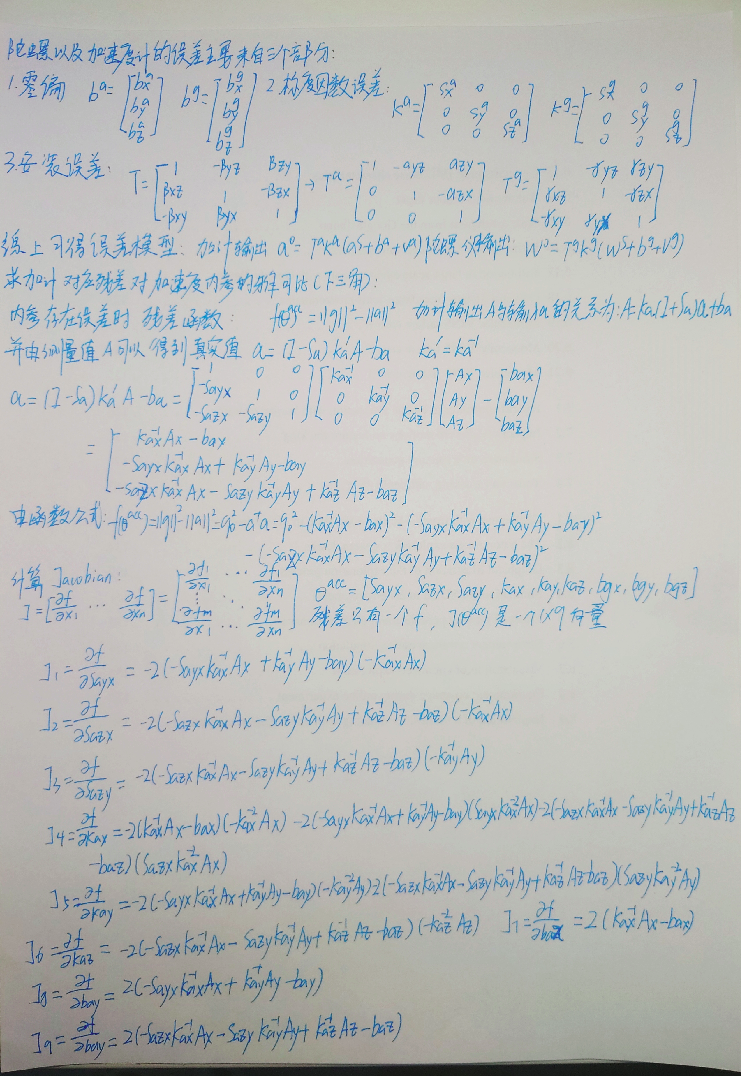 陀螺以及加速度计的误差主要来自三个部分:
1.零偏 b^a=[b_x^a b_y^a b_z^a] b^g=[b_x^g b_y^g b_z^g] 2.标度因数误差: K^a=[s_x^a 0 0; 0 s_y^a 0; 0 0 s_z^a] K^g=[s_x^g 0 0; 0 s_y^g 0; 0 0 s_z^g]
3.安装误差: T=[1 -βyz βzy; βxz 1 -βzx; -βxy βyx 1] → T^a=[1 -αyz αzy; 0 1 -αzx; 0 0 1] T^g=[1 -γyz γzy; γxz 1 -γzx; -γxy γyx 1]
综上可得误差模型: 加计输出 a^o=T^aK^a(a^s+b^a+v^a) 陀螺仪输出: w^o=T^gK^g(w^s+b^g+v^g)
求加计对应残差对加速度内参的雅可比(下三角):
内参存在误差时 残差函数: f(θ^acc)=||g||²-||a||² 加计输出A与输入a的关系为:A=ka(I+Sa)a+ba
并由测量值A可以得到真实值 a=(I-Sa)ka'A-ba ka'=ka^-1
a=(I-Sa)ka'A-ba=[1 0 0; -Sayx 1 0; -Sazx -Sazy 1][kax^-1 0 0; 0 kay^-1 0; 0 0 kaz^-1][Ax Ay Az]-[bax bay baz]
=[kax^-1Ax-bax
-Sayxkax^-1Ax+kay^-1Ay-bay
-Sazxkax^-1Ax-Sazykay^-1Ay+kaz^-1Az-baz]
由函数公式:f(θ^acc)=||g||²-||a||²=g0²-a^Ta=g0²-(kax^-1Ax-bax)²-(-Sayxkax^-1Ax+kay^-1Ay-bay)²
-(-Sazxkax^-1Ax-Sazykay^-1Ay+kaz^-1Az-baz)²
计算Jacobian:
J=[∂f/∂x1 ⋯ ∂f/∂xn]=[∂f1/∂x1 ⋯ ∂f1/∂xn; ⋮ ⋱ ⋮; ∂fm/∂x1 ⋯ ∂fm/∂xn] θ^acc=[Sayx, Sazx, Sazy, kax, kay, kaz, bgx, bgy, bgz]
残差只有一个f, J(θ^acc)是一个1×9向量
J1=∂f/∂Sayx=-2(-Sayxkax^-1Ax+kay^-1Ay-bay)(-kax^-1Ax)
J2=∂f/∂Sazx=-2(-Sazxkax^-1Ax-Sazykay^-1Ay+kaz^-1Az-baz)(-kax^-1Ax)
J3=∂f/∂Sazy=-2(-Sazxkax^-1Ax-Sazykay^-1Ay+kaz^-1Az-baz)(-kay^-1Ay)
J4=∂f/∂kax=-2(kax^-1Ax-bax)(-kax^-2Ax)-2(-Sayxkax^-1Ax+kay^-1Ay-bay)(Sayxkax^-2Ax)-2(-Sazxkax^-1Ax-Sazykay^-1Ay+kaz^-1Az
-baz)(Sazxkax^-2Ax)
J5=∂f/∂kay=-2(-Sayxkax^-1Ax+kay^-1Ay-bay)(-kay^-2Ay)-2(-Sazxkax^-1Ax-Sazykay^-1Ay+kaz^-1Az-baz)(Sazykay^-2Ay)
J6=∂f/∂kaz=-2(-Sazxkax^-1Ax-Sazykay^-1Ay+kaz^-1Az-baz)(-kaz^-2Az) J7=∂f/∂bax=2(kax^-1Ax-bax)
J8=∂f/∂bay=2(-Sayxkax^-1Ax+kay^-1Ay-bay)
J9=∂f/∂bay=2(-Sazxkax^-1Ax-Sazykay^-1Ay+kaz^-1Az-baz)